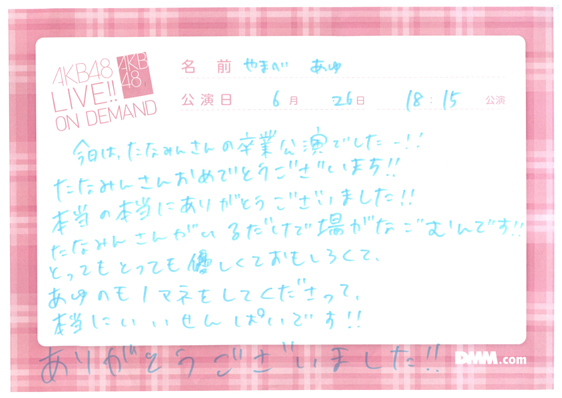 AKB48
LIVE!!
ON DEMAND
AKB
48
名前 やまべ あゆ
公演日 6月 26日 18:15 公演
今日は、たなみんさんの卒業公演でしたー!!
たなみんさんおめでとうございます!!
本当の本当にありがとうございました!!
たなみんさんがいるだけで場がなごむんです!!
とってもとっても優しくておもしろくて、
あゆのモノマネをしてくださって、
本当にいいせんぱいです!!
ありがとうございました!!
DMM.com